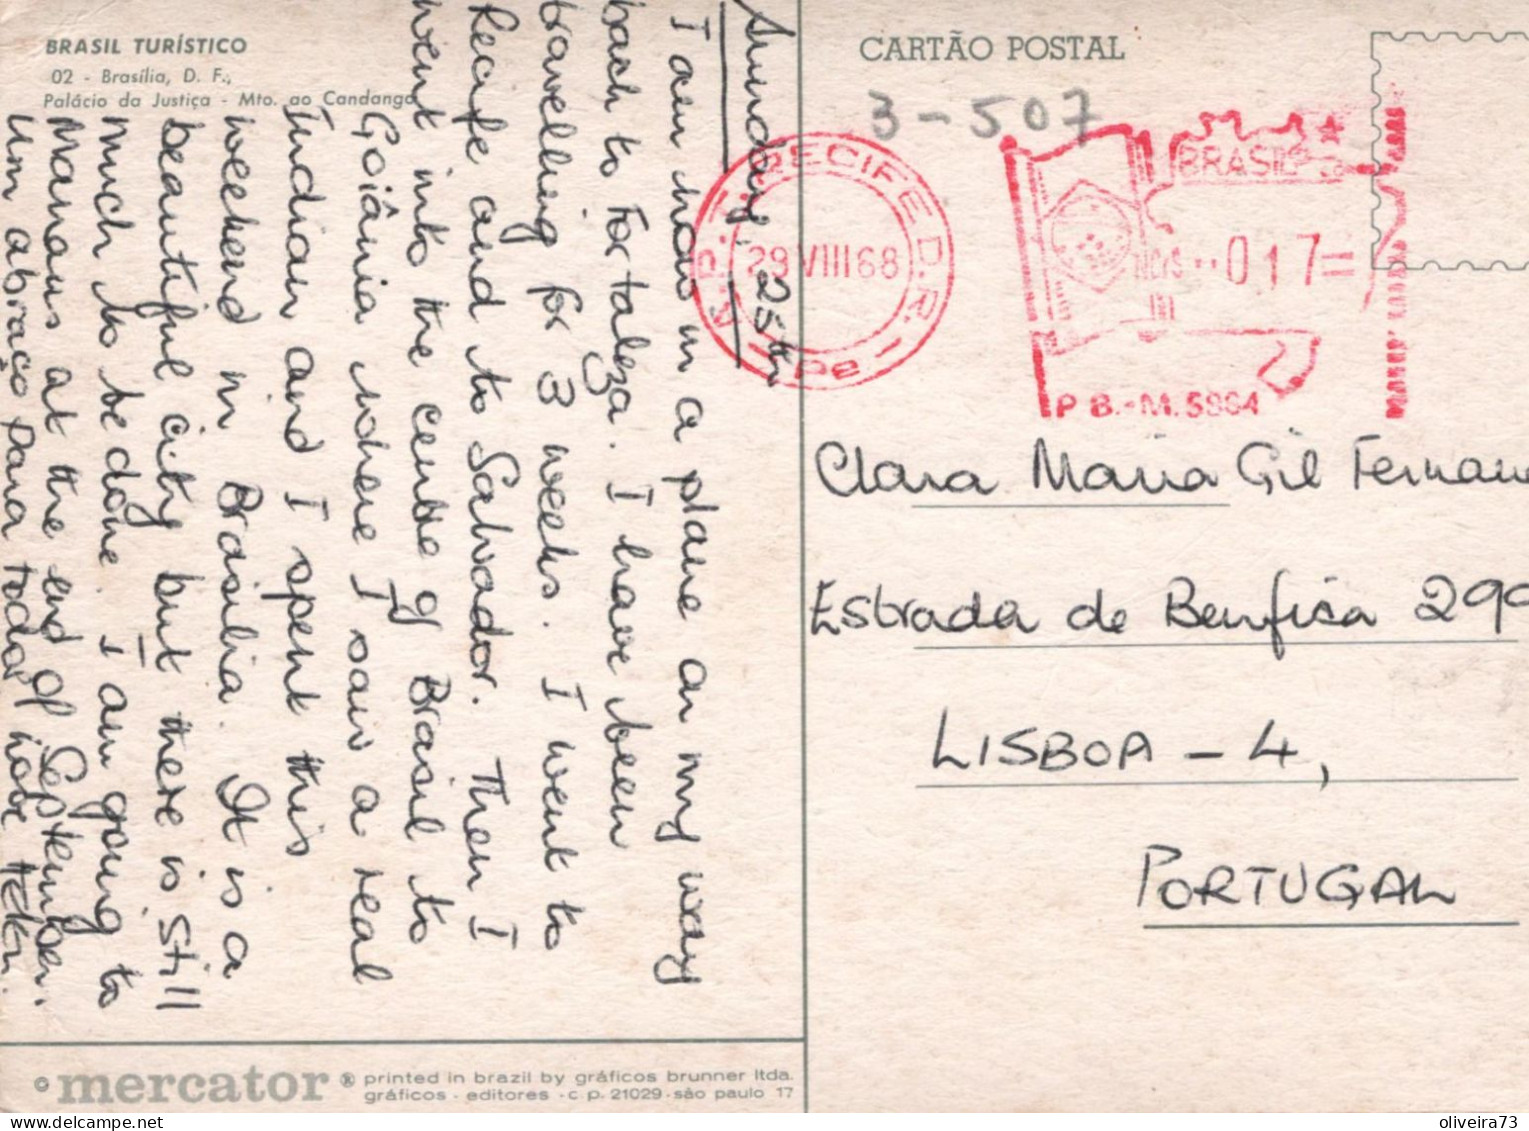 BRASIL TURÍSTICO
02 - Brasília, D. F.,
Palácio da Justiça - Mto. ao Candango
Sunday, 25th
I am now in a plane on my way
back to Fortaleza. I have been
travelling for 3 weeks. I went to
Recife and to Salvador. Then I
went into the centre of Brasil to
Goiânia where I saw a real
Indian and I spent this
weekend in Brasilia. It is a
beautiful city but there is still
much to be done. I am going to
Manaus at the end of September.
Um abraço para todos
CARTÃO POSTAL
3-507
RECIFE D.R.
29 VIII 68
PE
BRASIL
NCr$ 017=
P B.-M. 5864
Clara Maria Gil
Estrada de Benfica 299
LISBOA - 4,
PORTUGAL
© mercator ® printed in brazil by gráficos brunner ltda.
gráficos - editores - c p. 21029 - são paulo 17
oliveira73